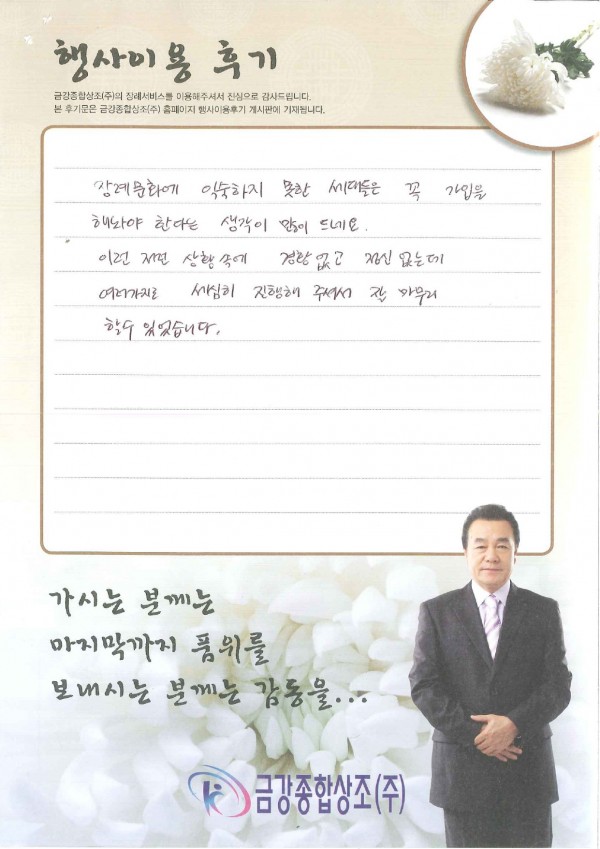 행사이용 후기
금강종합상조(주)의 장례서비스를 이용해주셔서 진심으로 감사드립니다.
본 후기문은 금강종합상조(주) 홈페이지 행사이용후기 게시판에 기재됩니다.
장례문화에 익숙하지 못한 세대들은 꼭 가입을
해놔야 한다는 생각이 많이 드네요.
이런 저런 상황 속에 경황 없고 정신 없는데
여러가지로 세심히 진행해 주셔서 잘 마무리
할수 있었습니다.
가시는 분께는
마지막까지 품위를
보내시는 분께는 감동을...
금강종합상조(주)